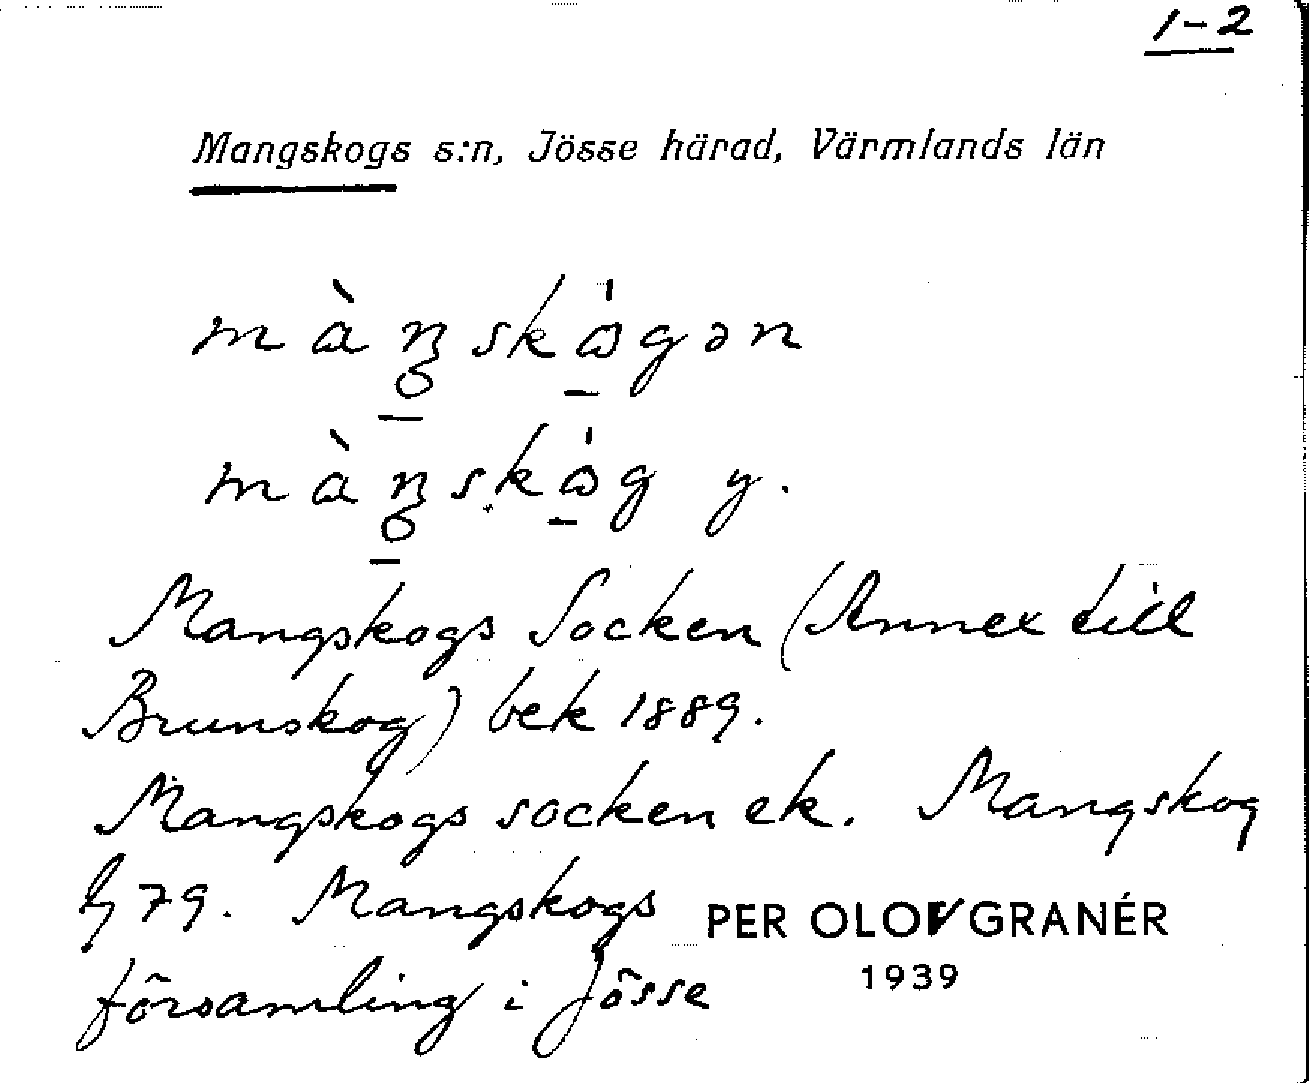 1-2
Mangskogs s:n, Jösse härad, Värmlands län
y.
Mangskogs Socken (Annex till
Brunskog) bek 1889.
Mangskogs socken ek. Mangskog
79. Mangskogs
PER OLOV GRANÉR
församling i Jösse
1939